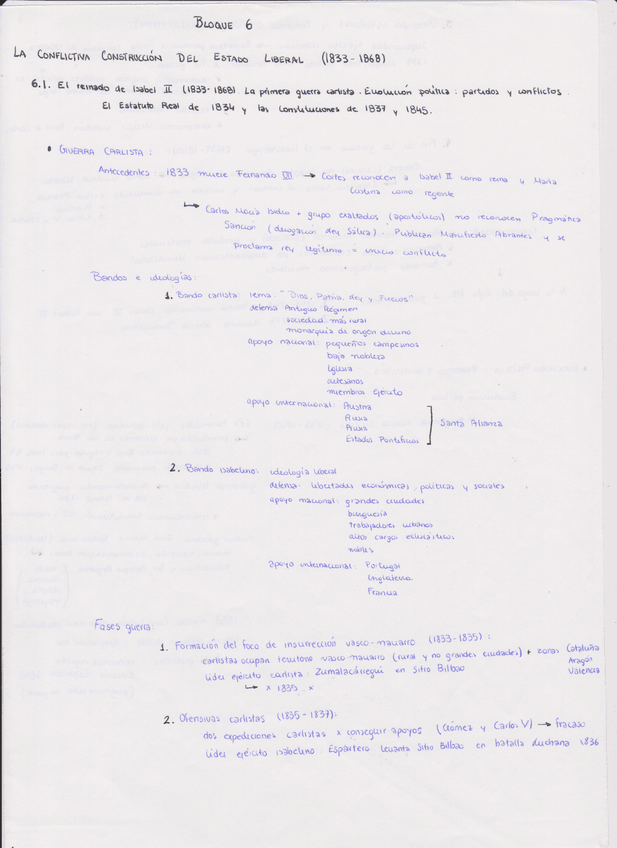 BLOQUE 6
LA CONFLICTIVA CONSTRUCCIÓN DEL ESTADO LIBERAL (1833-1868)
6.1. El reinado de Isabel II (1833-1868) La primera guerra carlista. Evolución política: partidos y conflictos.
El Estatuto Real de 1834 y las Constituciones de 1837 y 1845.
• GUERRA CARLISTA:
Antecedentes: 1833 muere Fernando VII → Cortes reconocen a Isabel II como reina y María
Cristina como regente
↳ Carlos María Isidro + grupo exaltados (apostólicos) no reconocen Pragmática
Sanción (derogación Ley Sálica). Publican Manifiesto Abrantes y se
proclama rey legítimo = inicio conflicto
Bandos e ideologías:
1. Bando carlista: lema: "Dios, Patria, Rey y Fueros"
defensa Antiguo Régimen
sociedad más rural
monarquía de origen divino
apoyo nacional: pequeños campesinos
baja nobleza
Iglesia
artesanos
miembros ejército
apoyo internacional: Austria
Rusia
Prusia
Estados Pontificios
Santa Alianza
2. Bando isabelino: ideología liberal
defensa: libertades económicas, políticas y sociales
apoyo nacional: grandes ciudades
burguesía
trabajadores urbanos
altos cargos eclesiásticos
nobles
apoyo internacional: Portugal
Inglaterra
Francia
Fases guerra:
1. Formación del foco de insurrección vasco-navarro (1833-1835):
carlistas ocupan territorio vasco-navarro (rural y no grandes ciudades) + zonas Cataluña
Aragón
Valencia
líder ejército carlista: Zumalacárregui en Sitio Bilbao
↳ x 1835 x
2. Ofensivas carlistas (1835-1837):
dos expediciones carlistas x conseguir apoyos (Gómez y Carlos V) → fracaso
líder ejército isabelino Espartero levanta Sitio Bilbao en batalla Luchana 1836